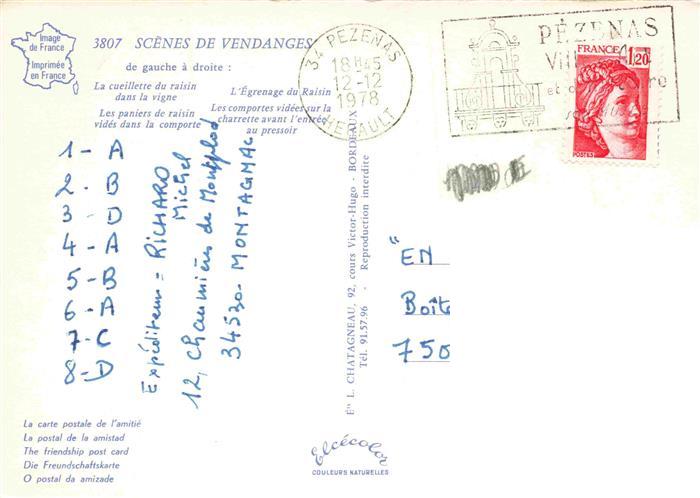 Image
de France
Imprimée
en France
3807 SCÈNES DE VENDANGES
de gauche à droite :
La cueillette du raisin
dans la vigne
Les paniers de raisin
vidés dans la comporte
L'Égrenage du Raisin
Les comportes vidées sur la
charrette avant l'entrée
au pressoir
34 PEZENAS
18 H 45
12-12
1978
HERAULT
PÉZENAS
FRANCE
1,20
POSTES
1 - A
2 - B
3 - D
4 - A
5 - B
6 - A
7 - C
8 - D
Expéditeur = RICHARD
Michel
34530 - MONTAGNAC
"EN
Boîte
750
Éts L. CHATAGNEAU, 92, cours Victor-Hugo - BORDEAUX
Tél. 91.57.96 - Reproduction interdite
La carte postale de l'amitié
La postal de la amistad
The friendship post card
Die Freundschaftskarte
O postal da amizade
Elcécolor
COULEURS NATURELLES